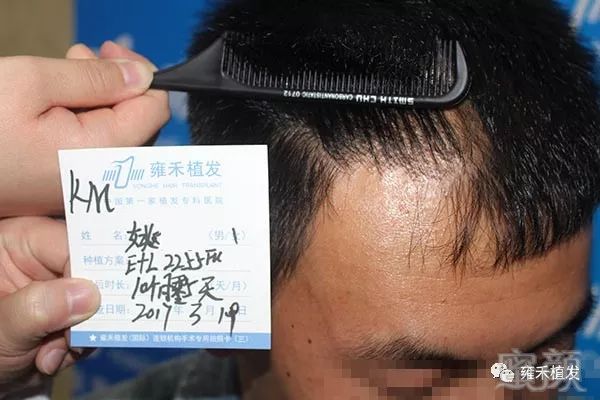 SMITH CHU CARBONANTISTATIC 0712
雍禾植发
YONGHE HAIR TRANSPLANT
国第一家植发专科医院
KM
姓 名 (男/女) 1
种植方案 2255
运时长: 10个 5 天 天/月)
日期: 2017 3 19
★ 雍禾植发(国际)连锁机构手术专用拍照卡(三)
雍禾植发